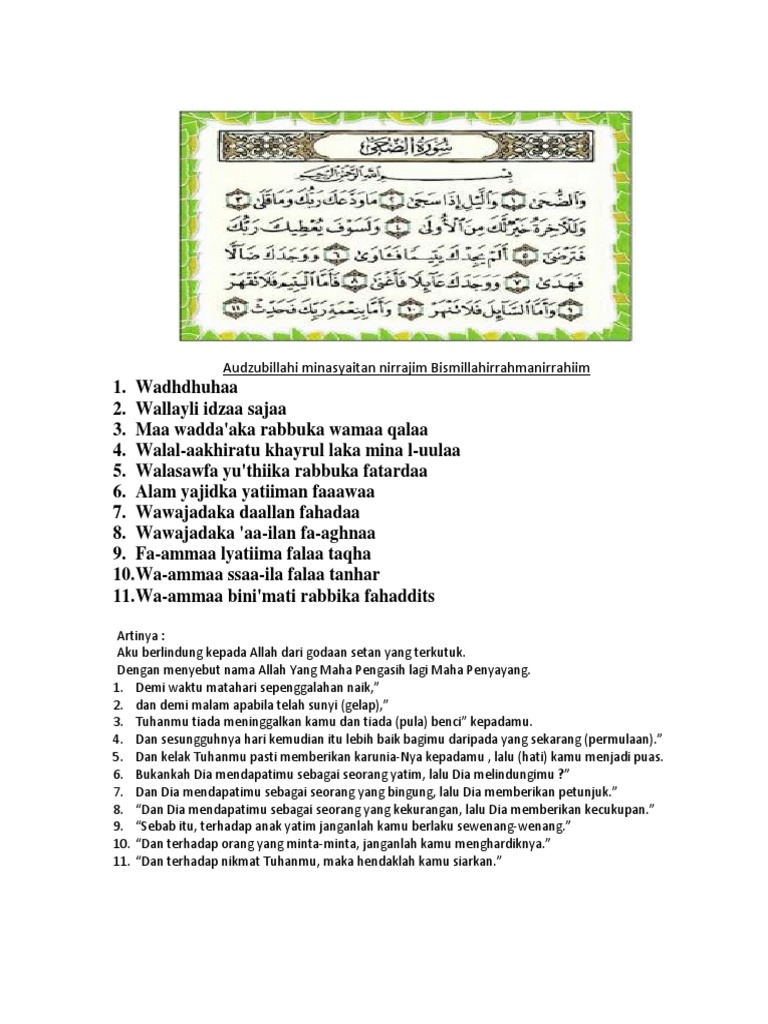 سُورَةُ الضُّحَىٰ
بِسْمِ اللَّهِ الرَّحْمَٰنِ الرَّحِيمِ
وَالضُّحَىٰ ١ وَاللَّيْلِ إِذَا سَجَىٰ ٢ مَا وَدَّعَكَ رَبُّكَ وَمَا قَلَىٰ ٣
وَلَلْآخِرَةُ خَيْرٌ لَّكَ مِنَ الْأُولَىٰ ٤ وَلَسَوْفَ يُعْطِيكَ رَبُّكَ
فَتَرْضَىٰ ٥ أَلَمْ يَجِدْكَ يَتِيمًا فَآوَىٰ ٦ وَوَجَدَكَ ضَالًّا
فَهَدَىٰ ٧ وَوَجَدَكَ عَائِلًا فَأَغْنَىٰ ٨ فَأَمَّا الْيَتِيمَ فَلَا تَقْهَرْ
٩ وَأَمَّا السَّائِلَ فَلَا تَنْهَرْ ١٠ وَأَمَّا بِنِعْمَةِ رَبِّكَ فَحَدِّثْ ١١
Audzubillahi minasyaitan nirrajim Bismillahirrahmanirrahiim
1. Wadhdhuhaa
2. Wallayli idzaa sajaa
3. Maa wadda'aka rabbuka wamaa qalaa
4. Walal-aakhiratu khayrul laka mina l-uulaa
5. Walasawfa yu'thiika rabbuka fatardaa
6. Alam yajidka yatiiman faaawaa
7. Wawajadaka daallan fahadaa
8. Wawajadaka 'aa-ilan fa-aghnaa
9. Fa-ammaa lyatiima falaa taqha
10.Wa-ammaa ssaa-ila falaa tanhar
11.Wa-ammaa bini'mati rabbika fahaddits
Artinya :
Aku berlindung kepada Allah dari godaan setan yang terkutuk.
Dengan menyebut nama Allah Yang Maha Pengasih lagi Maha Penyayang.
1. Demi waktu matahari sepenggalahan naik,”
2. dan demi malam apabila telah sunyi (gelap),”
3. Tuhanmu tiada meninggalkan kamu dan tiada (pula) benci” kepadamu.
4. Dan sesungguhnya hari kemudian itu lebih baik bagimu daripada yang sekarang (permulaan).”
5. Dan kelak Tuhanmu pasti memberikan karunia-Nya kepadamu , lalu (hati) kamu menjadi puas.
6. Bukankah Dia mendapatimu sebagai seorang yatim, lalu Dia melindungimu ?”
7. Dan Dia mendapatimu sebagai seorang yang bingung, lalu Dia memberikan petunjuk.”
8. “Dan Dia mendapatimu sebagai seorang yang kekurangan, lalu Dia memberikan kecukupan.”
9. “Sebab itu, terhadap anak yatim janganlah kamu berlaku sewenang-wenang.”
10. “Dan terhadap orang yang minta-minta, janganlah kamu menghardiknya.”
11. “Dan terhadap nikmat Tuhanmu, maka hendaklah kamu siarkan.”